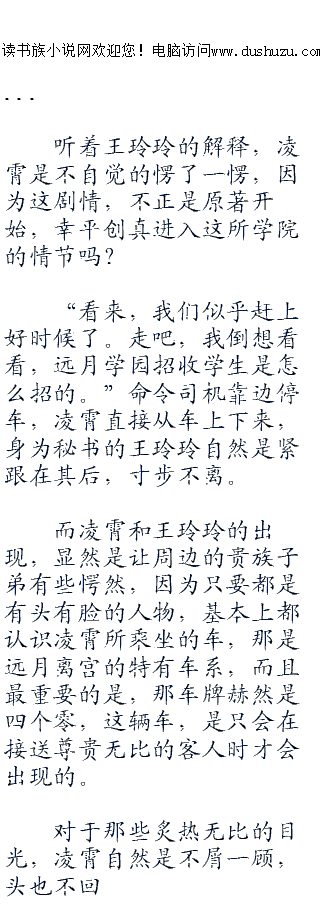 读书族小说网欢迎您！电脑访问www.dushuzu.com
...
听着王玲玲的解释，凌
霄是不自觉的愣了一愣，因
为这剧情，不正是原著开
始，幸平创真进入这所学院
的情节吗？
“看来，我们似乎赶上
好时候了。走吧，我倒想看
看，远月学园招收学生是怎
么招的。”命令司机靠边停
车，凌霄直接从车上下来，
身为秘书的王玲玲自然是紧
跟在其后，寸步不离。
而凌霄和王玲玲的出
现，显然是让周边的贵族子
弟有些愕然，因为只要都是
有头有脸的人物，基本上都
认识凌霄所乘坐的车，那是
远月离宫的特有车系，而且
最重要的是，那车牌赫然是
四个零，这辆车，是只会在
接送尊贵无比的客人时才会
出现的。
对于那些炙热无比的目
光，凌霄自然是不屑一顾，
头也不回